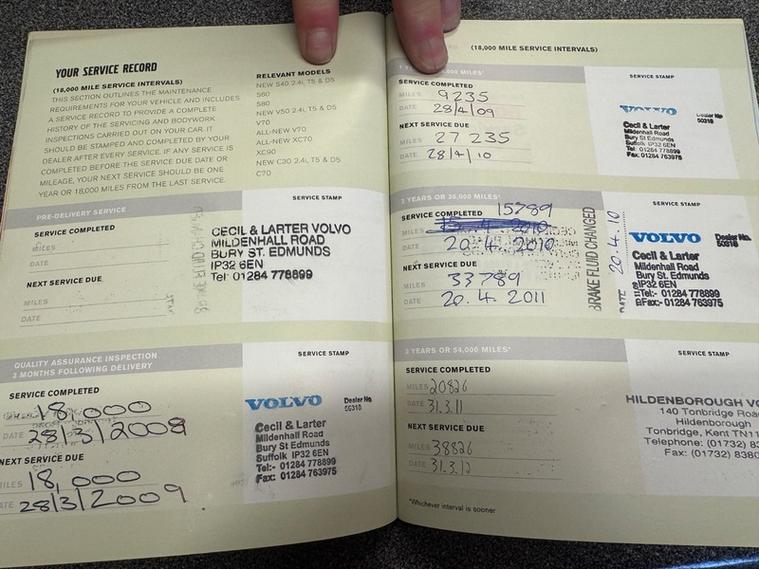 YOUR SERVICE RECORD
(18,000 MILE SERVICE INTERVALS)
THIS SECTION OUTLINES THE MAINTENANCE
REQUIREMENTS FOR YOUR VEHICLE AND INCLUDES
A SERVICE RECORD TO PROVIDE A COMPLETE
HISTORY OF THE SERVICING AND BODYWORK
INSPECTIONS CARRIED OUT ON YOUR CAR. IT
SHOULD BE STAMPED AND COMPLETED BY YOUR
DEALER AFTER EVERY SERVICE. IF ANY SERVICE IS
COMPLETED BEFORE THE SERVICE DUE DATE OR
MILEAGE, YOUR NEXT SERVICE SHOULD BE ONE
YEAR OR 18,000 MILES FROM THE LAST SERVICE.
RELEVANT MODELS
NEW S40 2.4i, T5 & D5
S60
S80
NEW V50 2.4i, T5 & D5
V70
ALL-NEW V70
ALL-NEW XC70
XC90
NEW C30 2.4i, T5 & D5
C70
PRE-DELIVERY SERVICE
SERVICE STAMP
SERVICE COMPLETED
MILES
DATE
NEXT SERVICE DUE
MILES
DATE
BRAKE FLUID CHANGED
CECIL & LARTER VOLVO
MILDENHALL ROAD
BURY ST. EDMUNDS
IP32 6EN
Tel: 01284 778899
QUALITY ASSURANCE INSPECTION
3 MONTHS FOLLOWING DELIVERY
SERVICE STAMP
SERVICE COMPLETED
18,000
DATE 28/3/2008
NEXT SERVICE DUE
MILES 18,000
DATE 28/3/2009
VOLVO
Dealer No.
50318
Cecil & Larter
Mildenhall Road
Bury St Edmunds
Suffolk IP32 6EN
Tel:- 01284 778899
Fax: 01284 763975
(18,000 MILE SERVICE INTERVALS)
SERVICE STAMP
SERVICE COMPLETED
MILES 9235
DATE 28/4/09
NEXT SERVICE DUE
MILES 27 235
DATE 28/4/10
VOLVO
Dealer No.
50318
Cecil & Larter
Mildenhall Road
Bury St Edmunds
Suffolk IP32 6EN
Tel: 01284 778899
Fax: 01284 763975
2 YEARS OR 36,000 MILES*
SERVICE STAMP
SERVICE COMPLETED 15789
MILES
DATE 20.4.2010
NEXT SERVICE DUE
MILES 33789
DATE 20.4.2011
BRAKE FLUID CHANGED
DATE 20.4.10
VOLVO
Dealer No.
50318
Cecil & Larter
Mildenhall Road
Bury St Edmunds
IP32 6EN
Tel:- 01284 778899
Fax:- 01284 763975
3 YEARS OR 54,000 MILES*
SERVICE STAMP
SERVICE COMPLETED
MILES 20826
DATE 31.3.11
NEXT SERVICE DUE
MILES 38826
DATE 31.3.12
HILDENBOROUGH VO
140 Tonbridge Road
Hildenborough
Tonbridge, Kent TN11
Telephone: (01732) 83
Fax: (01732) 8380
*Whichever interval is sooner